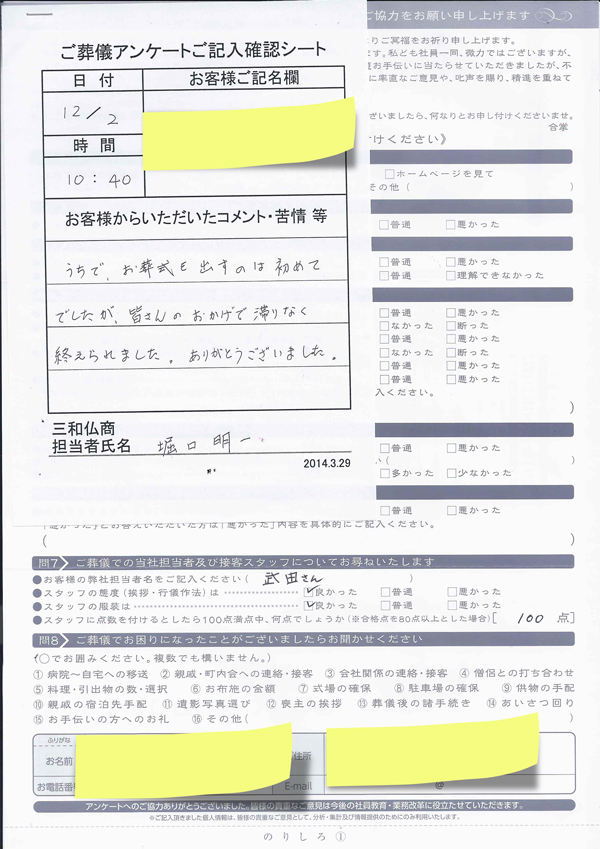 ご協力をお願い申し上げます
ご葬儀アンケートご記入確認シート
りご冥福をお祈り申し上げます。
す。私ども社員一同、微力ではございますが、
お手伝いに当たらせていただきましたが、不
に率直なご意見や、叱声を賜り、精進を重ねて
ざいましたら、何なりとお申し付けくださいませ。
合掌
付けください》
日付
お客様ご記名欄
12/2
時間
10:40
お客様からいただいたコメント・苦情 等
うちで、お葬式を出すのは初めて
でしたが、皆さんのおかげで滞りなく
終えられました。ありがとうございました。
三和仏商
担当者氏名 堀口明一
2014.3.29
□ホームページを見て
その他(
□普通 □悪かった
□普通 □悪かった
□普通 □理解できなかった
□普通 □悪かった
□なかった □断った
□普通 □悪かった
□なかった □断った
□普通 □悪かった
□普通 □悪かった
入ください。
)
□普通 □悪かった
□多かった □少なかった
□普通 □悪かった
「悪かった」とお答えいただいた方は「悪かった」内容を具体的にご記入ください。
( )
問7 ご葬儀での当社担当者及び接客スタッフについてお尋ねいたします
●お客様の弊社担当者名をご記入ください( 武田さん )
●スタッフの態度(挨拶・行儀作法)は ☑良かった □普通 □悪かった
●スタッフの服装は ☑良かった □普通 □悪かった
●スタッフに点数を付けるとしたら100点満点中、何点でしょうか(※合格点を80点以上とした場合)[ 100 点]
問8 ご葬儀でお困りになったことがございましたらお聞かせください
(○でお囲みください。複数でも構いません。)
① 病院〜自宅への移送 ② 親戚・町内会への連絡・接客 ③ 会社関係の連絡・接客 ④ 僧侶との打ち合わせ
⑤ 料理・引出物の数・選択 ⑥ お布施の金額 ⑦ 式場の確保 ⑧ 駐車場の確保 ⑨ 供物の手配
⑩ 親戚の宿泊先手配 ⑪ 遺影写真選び ⑫ 喪主の挨拶 ⑬ 葬儀後の諸手続き ⑭ あいさつ回り
⑮ お手伝いの方へのお礼 ⑯ その他( )
ふりがな
お名前
住所
お電話番
E-mail @
アンケートへのご協力ありがとうございました。皆様の貴重なご意見は今後の社員教育・業務改革に役立たせていただきます。
※ご記入頂きました個人情報は、皆様の貴重なご意見として、分析・集計及び情報提供のためにのみ利用いたします。
のりしろ①